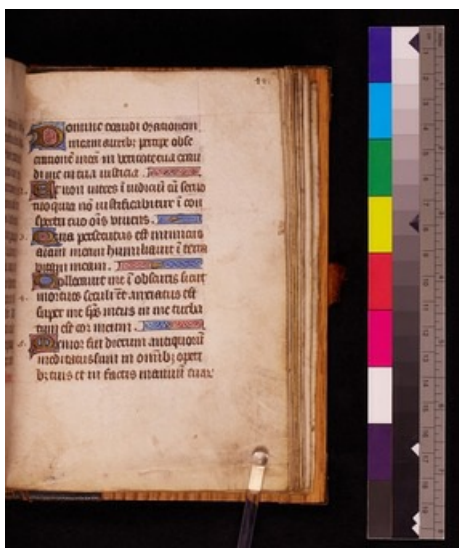 Domine exaudi orationem
meam auribz percipe obse
crationē meā in veritate tua exau
di me in tua iusticia .
Et non intres ī iudiciū cū seruo
tuo quia nō iustificabitur ī con
spectu tuo oīs viuens .
Quia persecutus est inimicus
aīam meam humiliauit ī terra
vitam meam .
Collocauit me ī obscuris sicut
mortuos seculi et anxiatus est
super me sp̄s meus in me turba
tum est cor meum .
Memor fui dierum antiquorū
meditatus sum in omībz operi
bz tuis et in factis manuū tuar